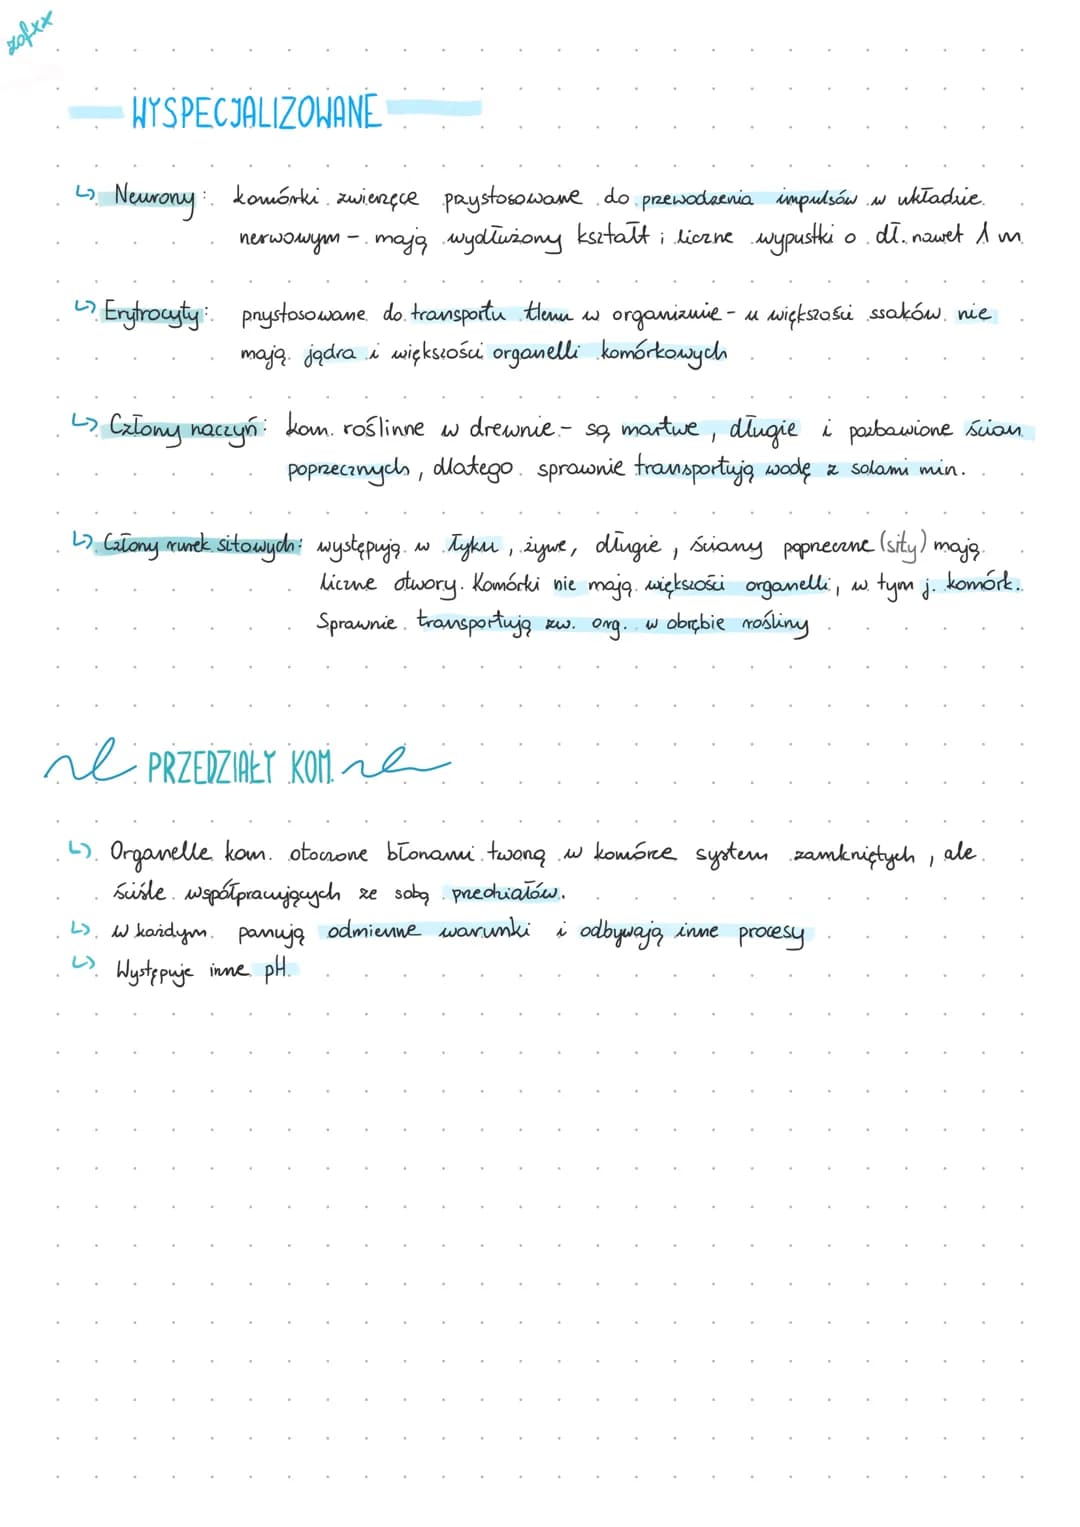 zofxx
WYSPECJALIZOWANE
↳ Neurony: komórki zwierzęce przystosowane do przewodzenia impulsów w układzie
nerwowym - mają wydłużony kształt i liczne wypustki o dł. nawet 1 m
↳ Erytrocyty: przystosowane do transportu tlenu w organizmie - u większości ssaków nie
mają jądra i większości organelli komórkowych
↳ Człony naczyń: kom. roślinne w drewnie - są martwe, długie i pozbawione ścian
poprzecznych, dlatego sprawnie transportują wodę z solami min.
↳ Człony rurek sitowych: występują w łyku, żywe, długie, ściany poprzeczne (sity) mają
liczne otwory. Komórki nie mają większości organelli, w tym j. komórk.
Sprawnie transportują zw. org. w obrębie rośliny
PRZEDZIAŁY KOM.
↳ Organelle kom. otoczone błonami tworzą w komórce system zamkniętych, ale
ściśle współpracujących ze sobą przedziałów.
↳ W każdym panują odmienne warunki i odbywają inne procesy
↳ Występuje inne pH.